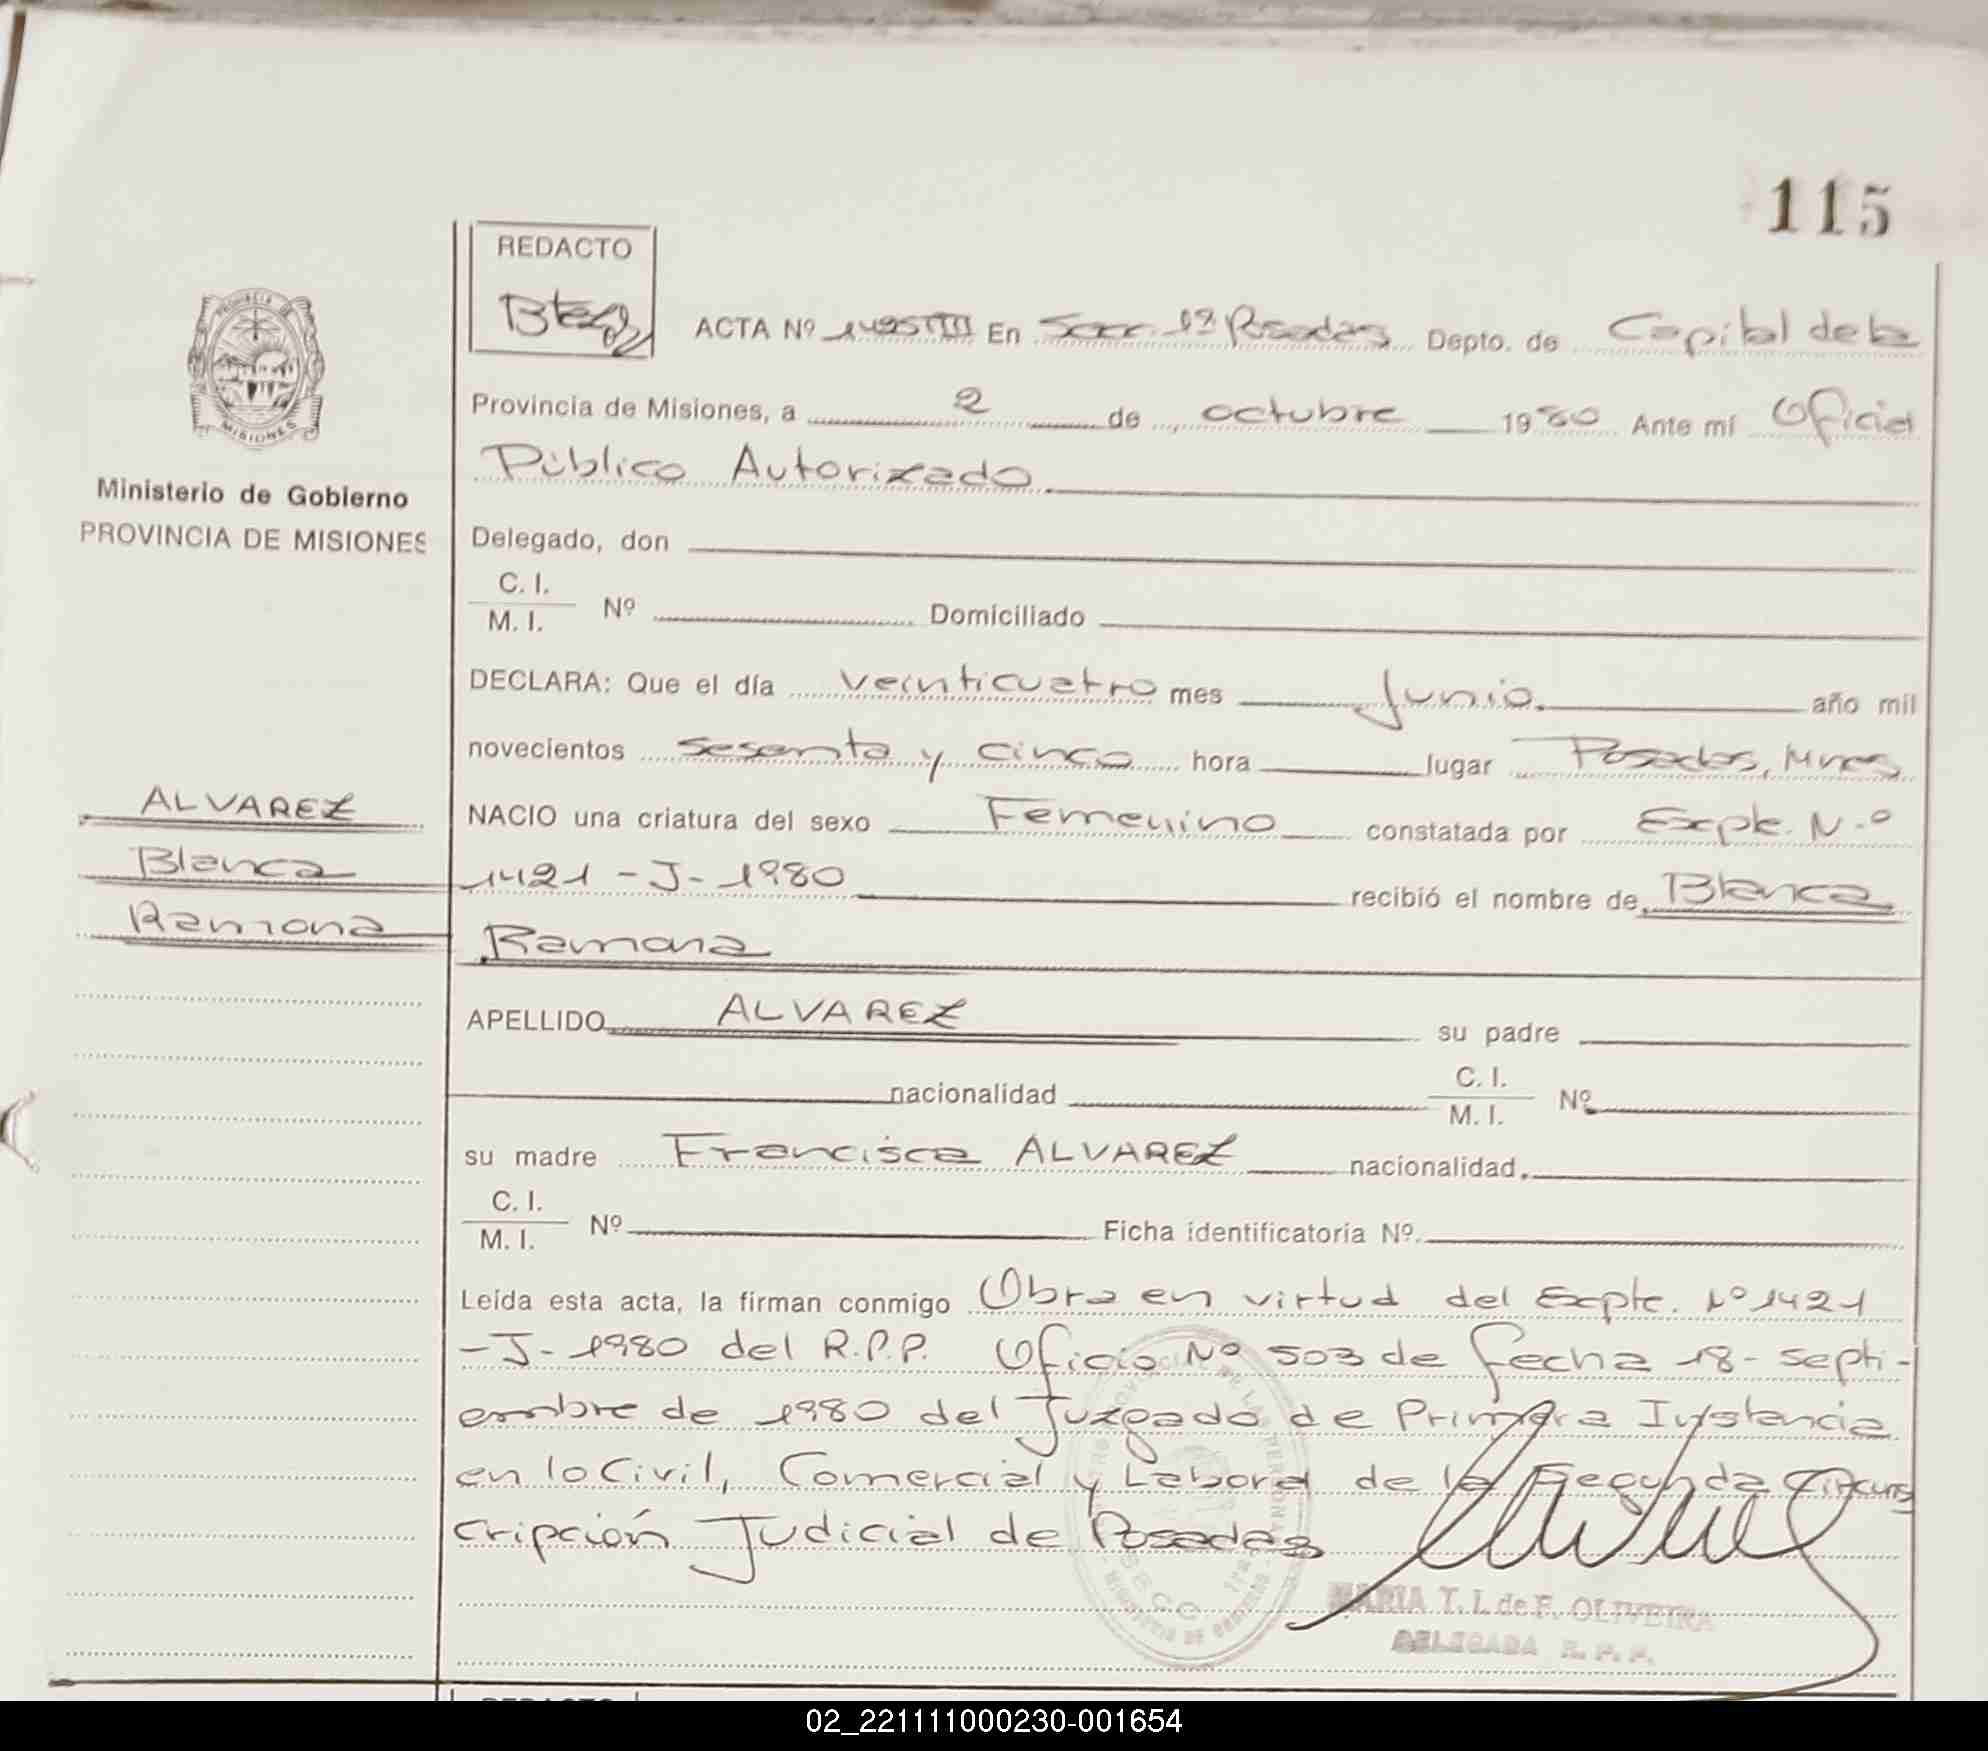 115
REDACTO
ACTA Nº 1495 TIII En Secc. 1ª Posadas Depto. de Capital de la
Provincia de Misiones, a 2 de octubre 1980 Ante mí Oficial
Público Autorizado
Ministerio de Gobierno
PROVINCIA DE MISIONES
Delegado, don
C. I.
M. I. Nº Domiciliado
DECLARA: Que el día veinticuatro mes Junio. año mil
novecientos sesenta y cinco hora lugar Posadas, Mnes
ALVAREZ
Blanca
Ramona
NACIO una criatura del sexo Femenino constatada por Expte. N.º
1421 - J - 1980 recibió el nombre de Blanca
Ramona
APELLIDO ALVAREZ su padre
nacionalidad C. I.
M. I. Nº
su madre Francisca ALVAREZ nacionalidad
C. I.
M. I. Nº Ficha identificatoria Nº
Leída esta acta, la firman conmigo Obra en virtud del Expte. Nº 1421
- J - 1980 del R.P.P. Oficio Nº 503 de fecha 18 - septi-
embre de 1980 del Juzgado de Primera Instancia
en lo Civil, Comercial y Laboral de la Segunda Circuns
cripción Judicial de Posadas
MARIA T. I. de F. OLIVEIRA
DELEGADA R. P. P.
REDACTO
02_221111000230-001654